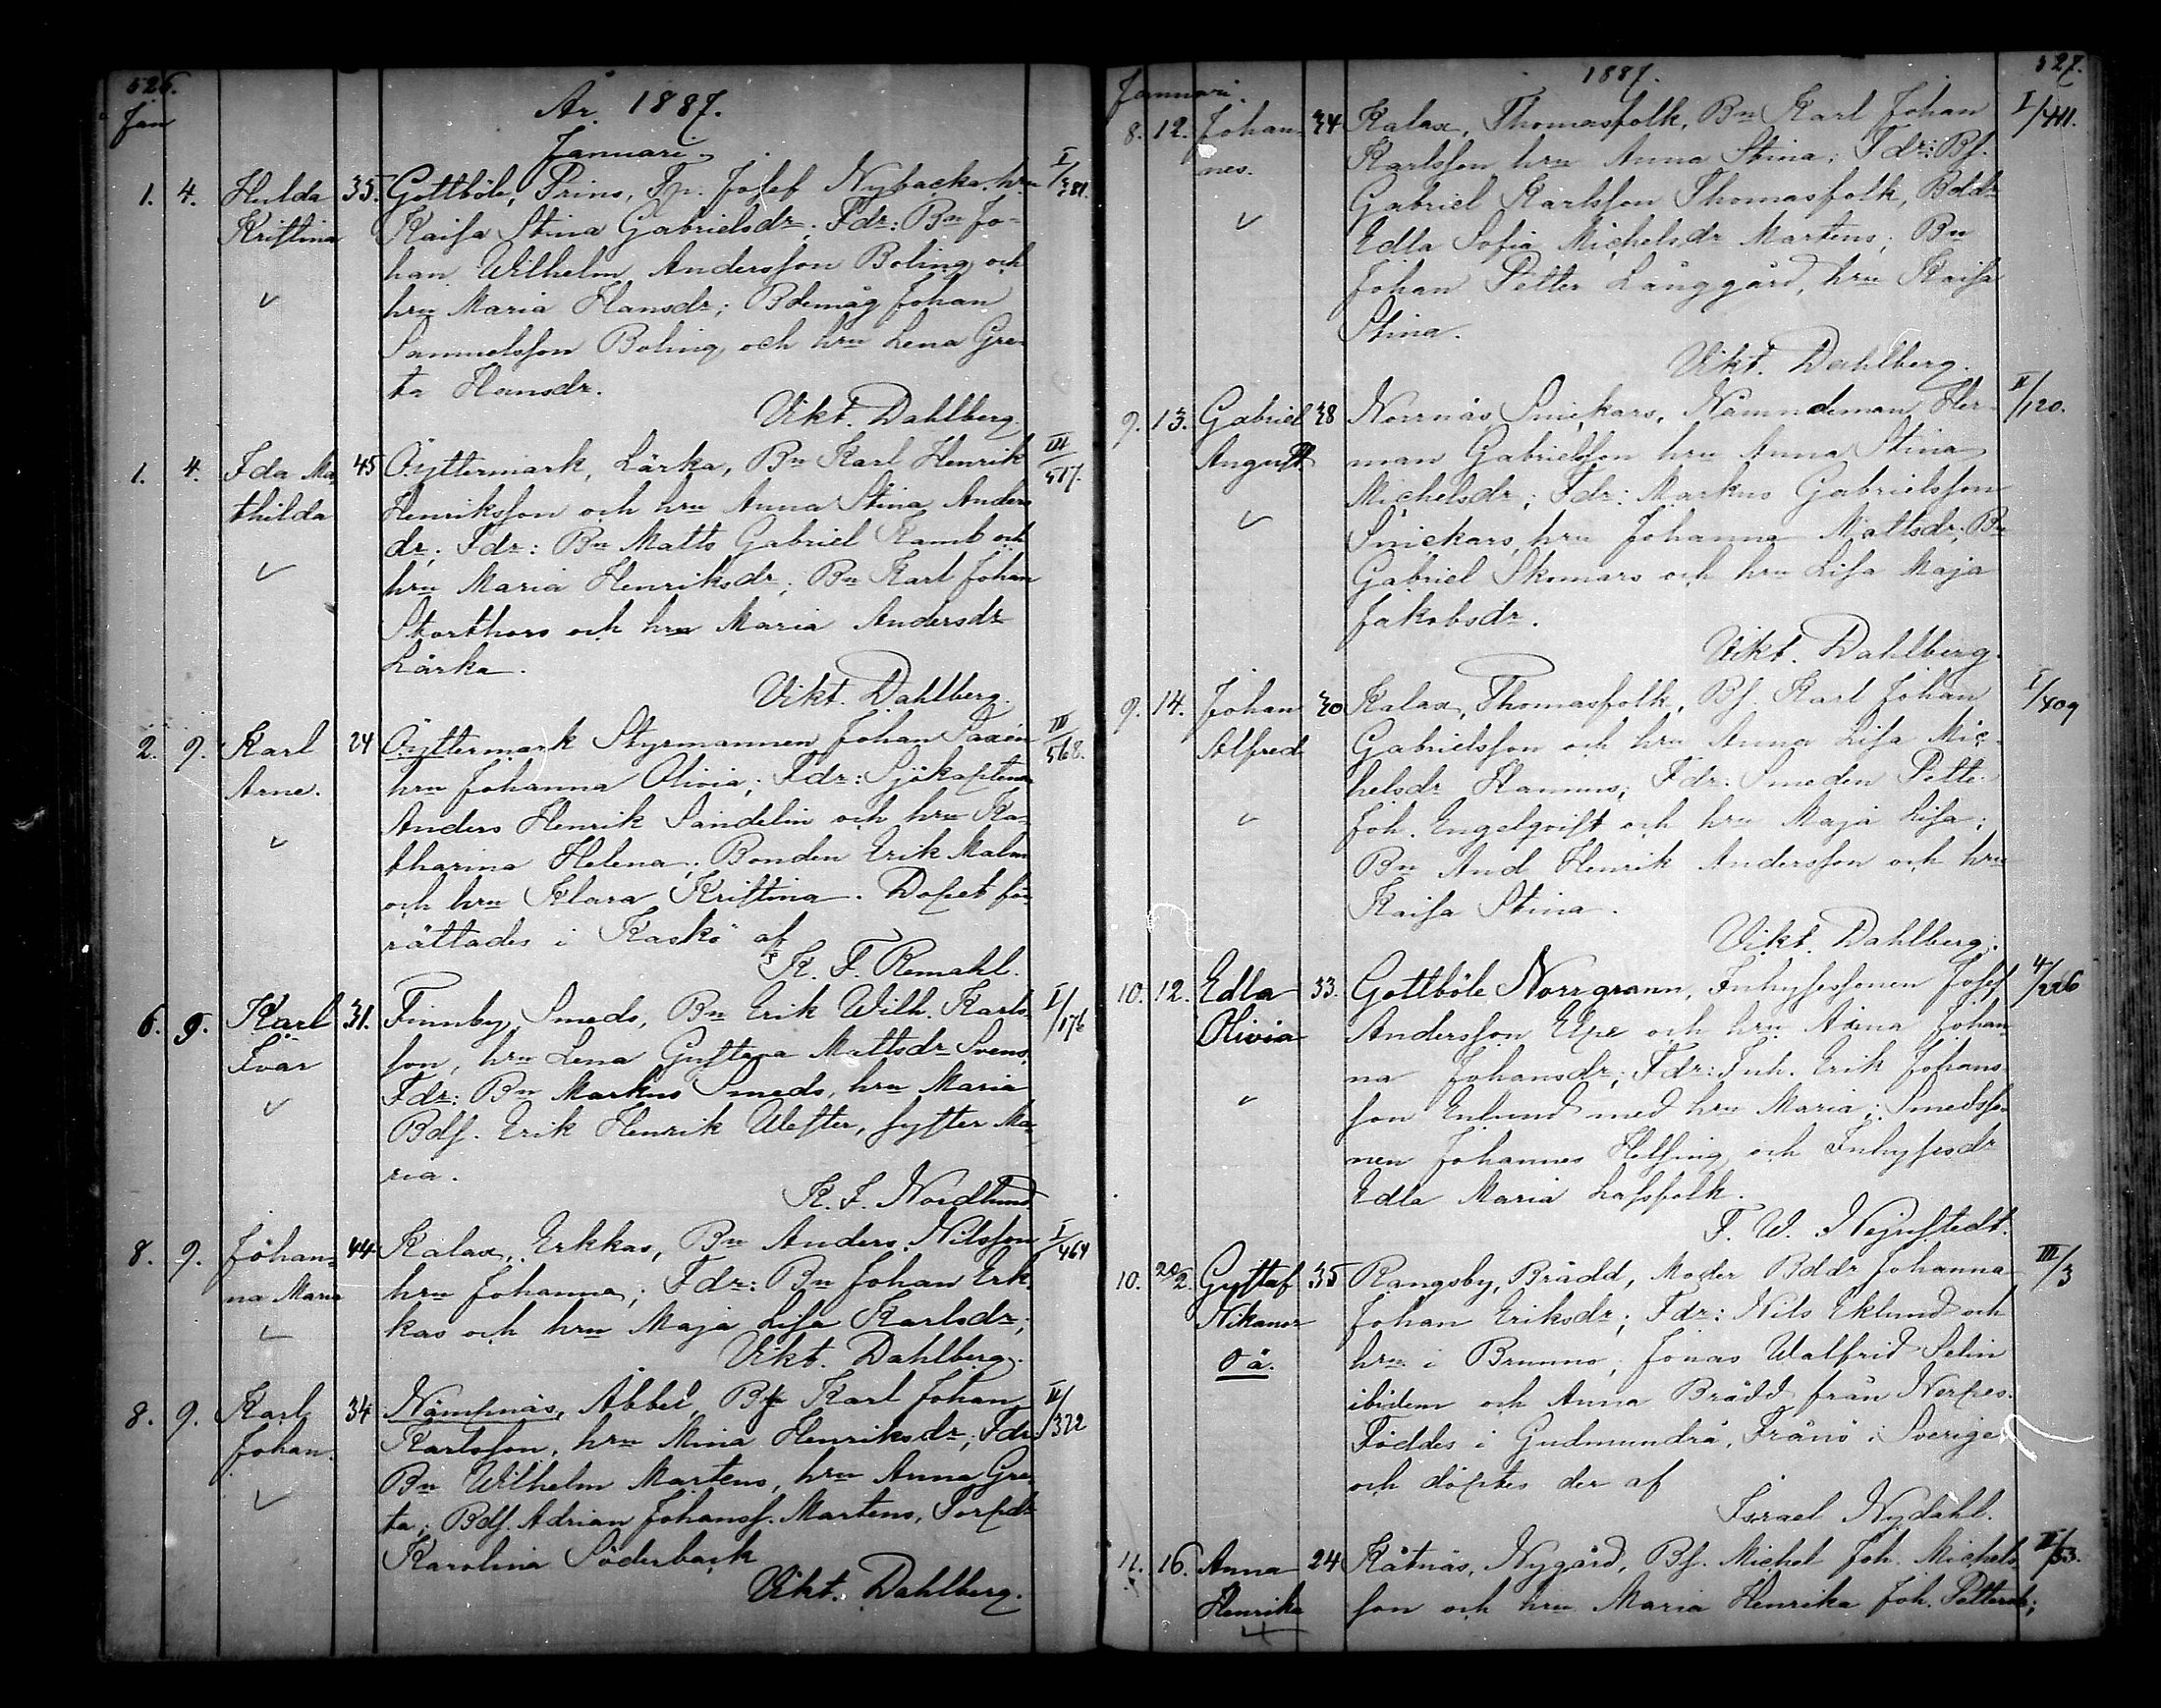 526.
Jan
År 1887.
Januari.
1. 4. Hulda 35. Gottböle, Prins, Tp. Josef Nybacka, hru I/381.
Kristina Kaisa Stina Gabrielsdr; Fdr: Bn Jo-
han Wilhelm Andersson Boling och
hru Maria Hansdr; Bdemåg Johan
Samuelsson Boling och hru Lena Gre-
ta Hansdr.
Vikt. Dahlberg.
1. 4. Ida Ma 45 Öyttermark, Lärka, Bn Karl Henrik III/517.
thilda Henriksson och hru Anna Stina Anders
dr; Fdr: Bn Matts Gabriel Kamb och
hru Maria Henriksdr; Bn Karl Johan
Storthors och hru Maria Andersdr
Lärka.
Vikt. Dahlberg.
2. 9. Karl 24 Öyttermark Styrmannen Johan Saxén III/568.
Arne. hru Johanna Olivia; Fdr: Sjökaptenen
Anders Henrik Sandelin och hru Ka-
tharina Helena; Bonden Erik Malm
och hru Klara Kristina. Dopet för-
rättades i Kaskö af
K. F. Remahl.
6. 9. Karl 31. Finnby, Smeds, Bn Erik Wilh. Karls- I/176
Ivar son, hru Lena Gustava Mattsdr Svens,
Fdr: Bn Markus Smeds, hru Maria
Bds. Erik Henrik Wester, syster Ma-
ria.
K. J. Nordlund
8. 9. Johan- 44 Kalax, Erkkas, Bn Anders Nilsson I/464
na Maria hru Johanna; Fdr: Bn Johan Erk-
kas och hru Maja Lisa Karlsdr;
Vikt. Dahlberg.
8. 9. Karl 34 Nämpnäs, Abbel, Bs Karl Johan II/322
Johan. Karlsson, hru Mina Henriksdr; Fdr
Bn Wilhelm Martens, hru Anna Gre-
ta; Bds. Adrian Johanss. Martens, Torpdr
Karolina Söderback
Vikt. Dahlberg.
527.
Januari.
1887.
8. 12. Johan- 34 Kalax, Thomasfolk, Bn Karl Johan I/411.
nes. Karlsson hru Anna Stina; Fdr: Bs.
Gabriel Karlsson Thomasfolk, Bddr
Edla Sofia Michelsdr Martens; Bn
Johan Petter Långgård, hru Kaisa
Stina.
Vikt. Dahlberg.
9. 13. Gabriel 38 Norrnäs Snickars, Nämndeman Her- II/120.
August man Gabrielsson hru Anna Stina
Michelsdr; Fdr: Markus Gabrielsson
Snickars, hru Johanna Mattsdr; Bn
Gabriel Skomars och hru Lisa Maja
Jakobsdr.
Vikt. Dahlberg.
9. 14. Johan 30 Kalax, Thomasfolk, Bs. Karl Johan I/409
Alfred Gabrielsson och hru Anna Lisa Mic-
helsdr Hannus; Fdr: Smeden Pette-
Joh. Engelqvist och hru Maja Lisa;
Bn And Henrik Andersson och hru
Kaisa Stina.
Vikt. Dahlberg.
10. 12. Edla 33. Gottböle Norrgrann, Inhysessonen Josef 4/226
Olivia Andersson Elpe och hru Anna Johan
na Johansdr; Fdr: Inh. Erik Johans-
son Enlund med hru Maria; Smedsso-
nen Johannes Helsing och Inhysesdr
Edla Maria Lassfolk.
F. W. Nejnstedt.
10. 20/2 Gustaf 35 Rangsby, Brådd, Moder Bddr Johanna III/3
Nikanor Johan Eriksdr; Fdr: Nils Eklund och
o ä. hru i Brunno, Jonas Walfrid Selin
ibidem och Anna Brådd från Nerpes.
Föddes i Gudmundrå, Frånö i Sverige
och döptes der af
Israel Nydahl.
11. 16. Anna 24 Kåtnäs, Nygård, Bs. Michel Joh. Michels- II/53.
Henrika son och hru Maria Henrika Joh. Pettersdr;